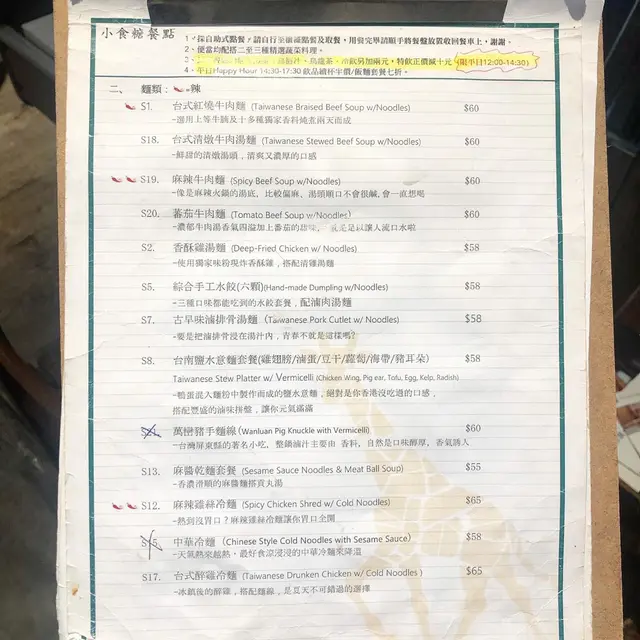 小食燒餐點
1、採自助式點餐，請自行至櫃檯點餐及取餐，用餐完畢請順手將餐盤放置收回餐車上，謝謝。
2、便當均配搭二至三種精選蔬菜料理。
烏龍茶、冷飲另加兩元，特飲正價減十元 (限平日12:00-14:30)
4、平日Happy Hour 14:30-17:30 飲品續杯半價/飯麵套餐七折。
二、 麵類： -辣
S1. 台式紅燒牛肉麵 (Taiwanese Braised Beef Soup w/Noodles) $60
-選用上等牛腩及十多種獨家香料炖煮兩天而成
S18. 台式清燉牛肉湯麵 (Taiwanese Stewed Beef Soup w/Noodles) $60
-鮮甜的清燉湯頭，清爽又濃厚的口感
S19. 麻辣牛肉麵 (Spicy Beef Soup w/Noodles) $60
-像是麻辣火鍋的湯底，比較偏麻、湯頭順口不會很鹹,會一直想喝
S20. 蕃茄牛肉麵 (Tomato Beef Soup w/Noodles) $60
-濃郁牛肉湯香氣四溢加上番茄的甜味， 就是足以讓人流口水啦
S2. 香酥雞湯麵 (Deep-Fried Chicken w/ Noodles) $58
-使用獨家味粉現炸香酥雞，搭配清雞湯麵
S5. 綜合手工水餃(六顆)(Hand-made Dumpling w/Noodles) $58
-三種口味都能吃到的水餃套餐，配滷肉湯麵
S7. 古早味滷排骨湯麵 (Taiwanese Pork Cutlet w/Noodles) $58
-要是把滷排骨浸在湯汁內，青春不就是這樣嗎?
S8. 台南鹽水意麵套餐(雞翅膀/滷蛋/豆干/蘿蔔/海帶/豬耳朵) $58
Taiwanese Stew Platter w/ Vermicelli (Chicken Wing, Pig ear, Tofu, Egg, Kelp, Radish)
-鴨蛋混入麵粉中製作而成的鹽水意麵，絕對是你香港沒吃過的口感，
搭配豐盛的滷味拼盤，讓你元氣滿滿
萬巒豬手麵線(Wanluan Pig Knuckle with Vermicelli) $60
-台灣屏東縣的著名小吃，整鍋滷汁主要由 香料，自然是口味醇厚，香氣誘人
S13. 麻醬乾麵套餐 (Sesame Sauce Noodles & Meat Ball Soup) $55
-香濃滑順的麻醬麵搭貢丸湯
S12. 麻辣雞絲冷麵 (Spicy Chicken Shred w/ Cold Noodles) $65
-熱到沒胃口？麻辣雞絲冷麵讓你胃口全開
中華冷麵 (Chinese Style Cold Noodles with Sesame Sauce) $58
-天氣熱來越熱，最好食涼浸浸的中華冷麵來降溫
S17. 台式醉雞冷麵 (Taiwanese Drunken Chicken w/ Cold Noodles ) $65
-冰鎮後的醉雞，搭配麵線，是夏天不可錯過的選擇